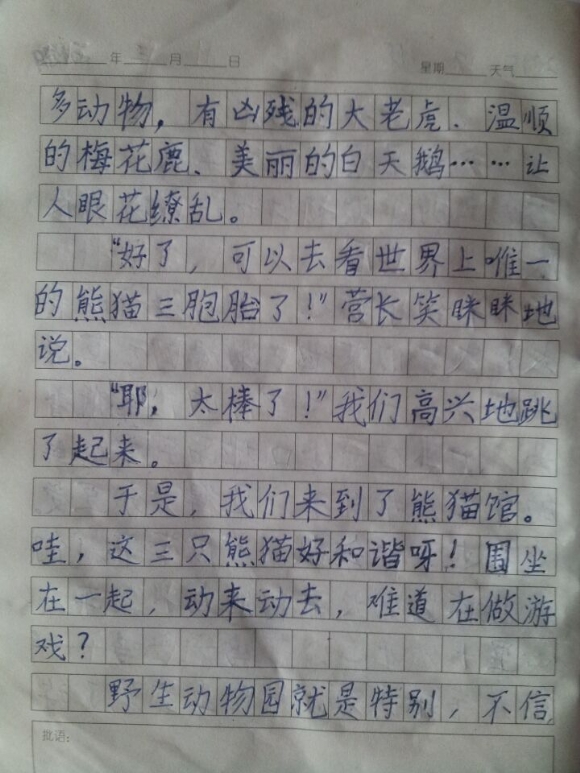 年 月 日 星期 天气
多动物，有凶残的大老虎、温顺
的梅花鹿、美丽的白天鹅……让
人眼花缭乱。
“好了，可以去看世界上唯一
的熊猫三胞胎了！”营长笑眯眯地
说。
“耶，太棒了！”我们高兴地跳
了起来。
于是，我们来到了熊猫馆。
哇，这三只熊猫好和谐呀！围坐
在一起，动来动去，难道在做游
戏？
野生动物园就是特别，不信
批语：